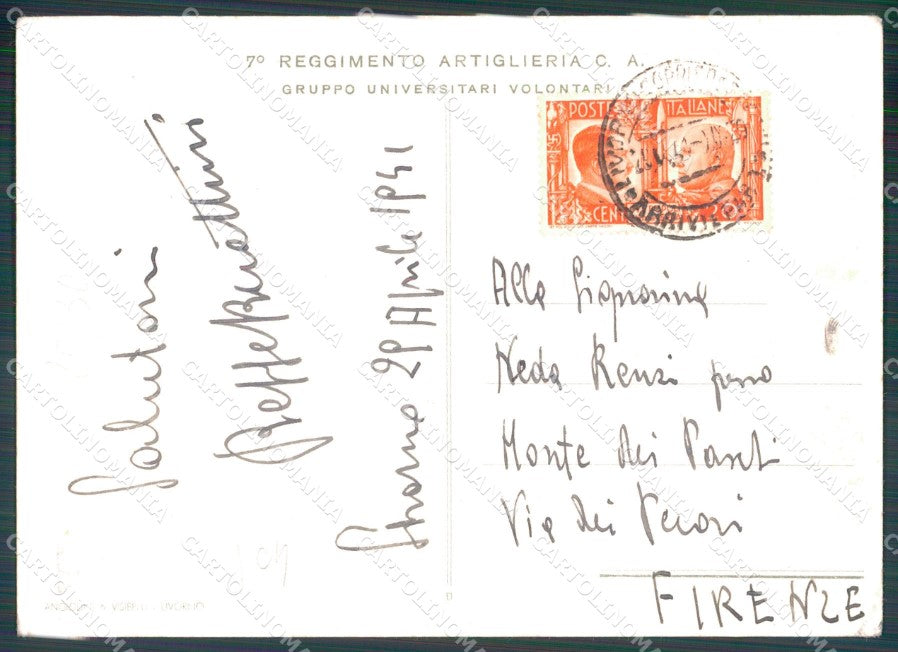 7° REGGIMENTO ARTIGLIERIA C. A.
GRUPPO UNIVERSITARI VOLONTARI
POSTE ITALIANE
CENT
ARRIVI
Salutoni
29 Aprile 1941
Alla Signorina
Neda Renzi presso
Monte dei Paschi
Via dei Pecori
FIRENZE
CARTOLINOMANIA